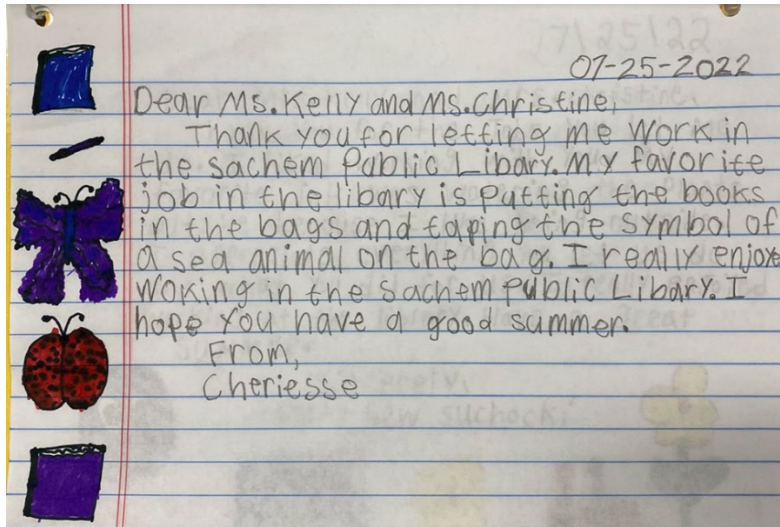 07-25-2022
Dear Ms. Kelly and Ms. Christine,
Thank you for letting me work in
the sachem Public Libary. My favorite
job in the libary is putting the books
in the bags and taping the symbol of
a sea animal on the bag. I really enjoye
woking in the Sachem Public Libary. I
hope you have a good summer.
From,
Cheriesse
7/25/22